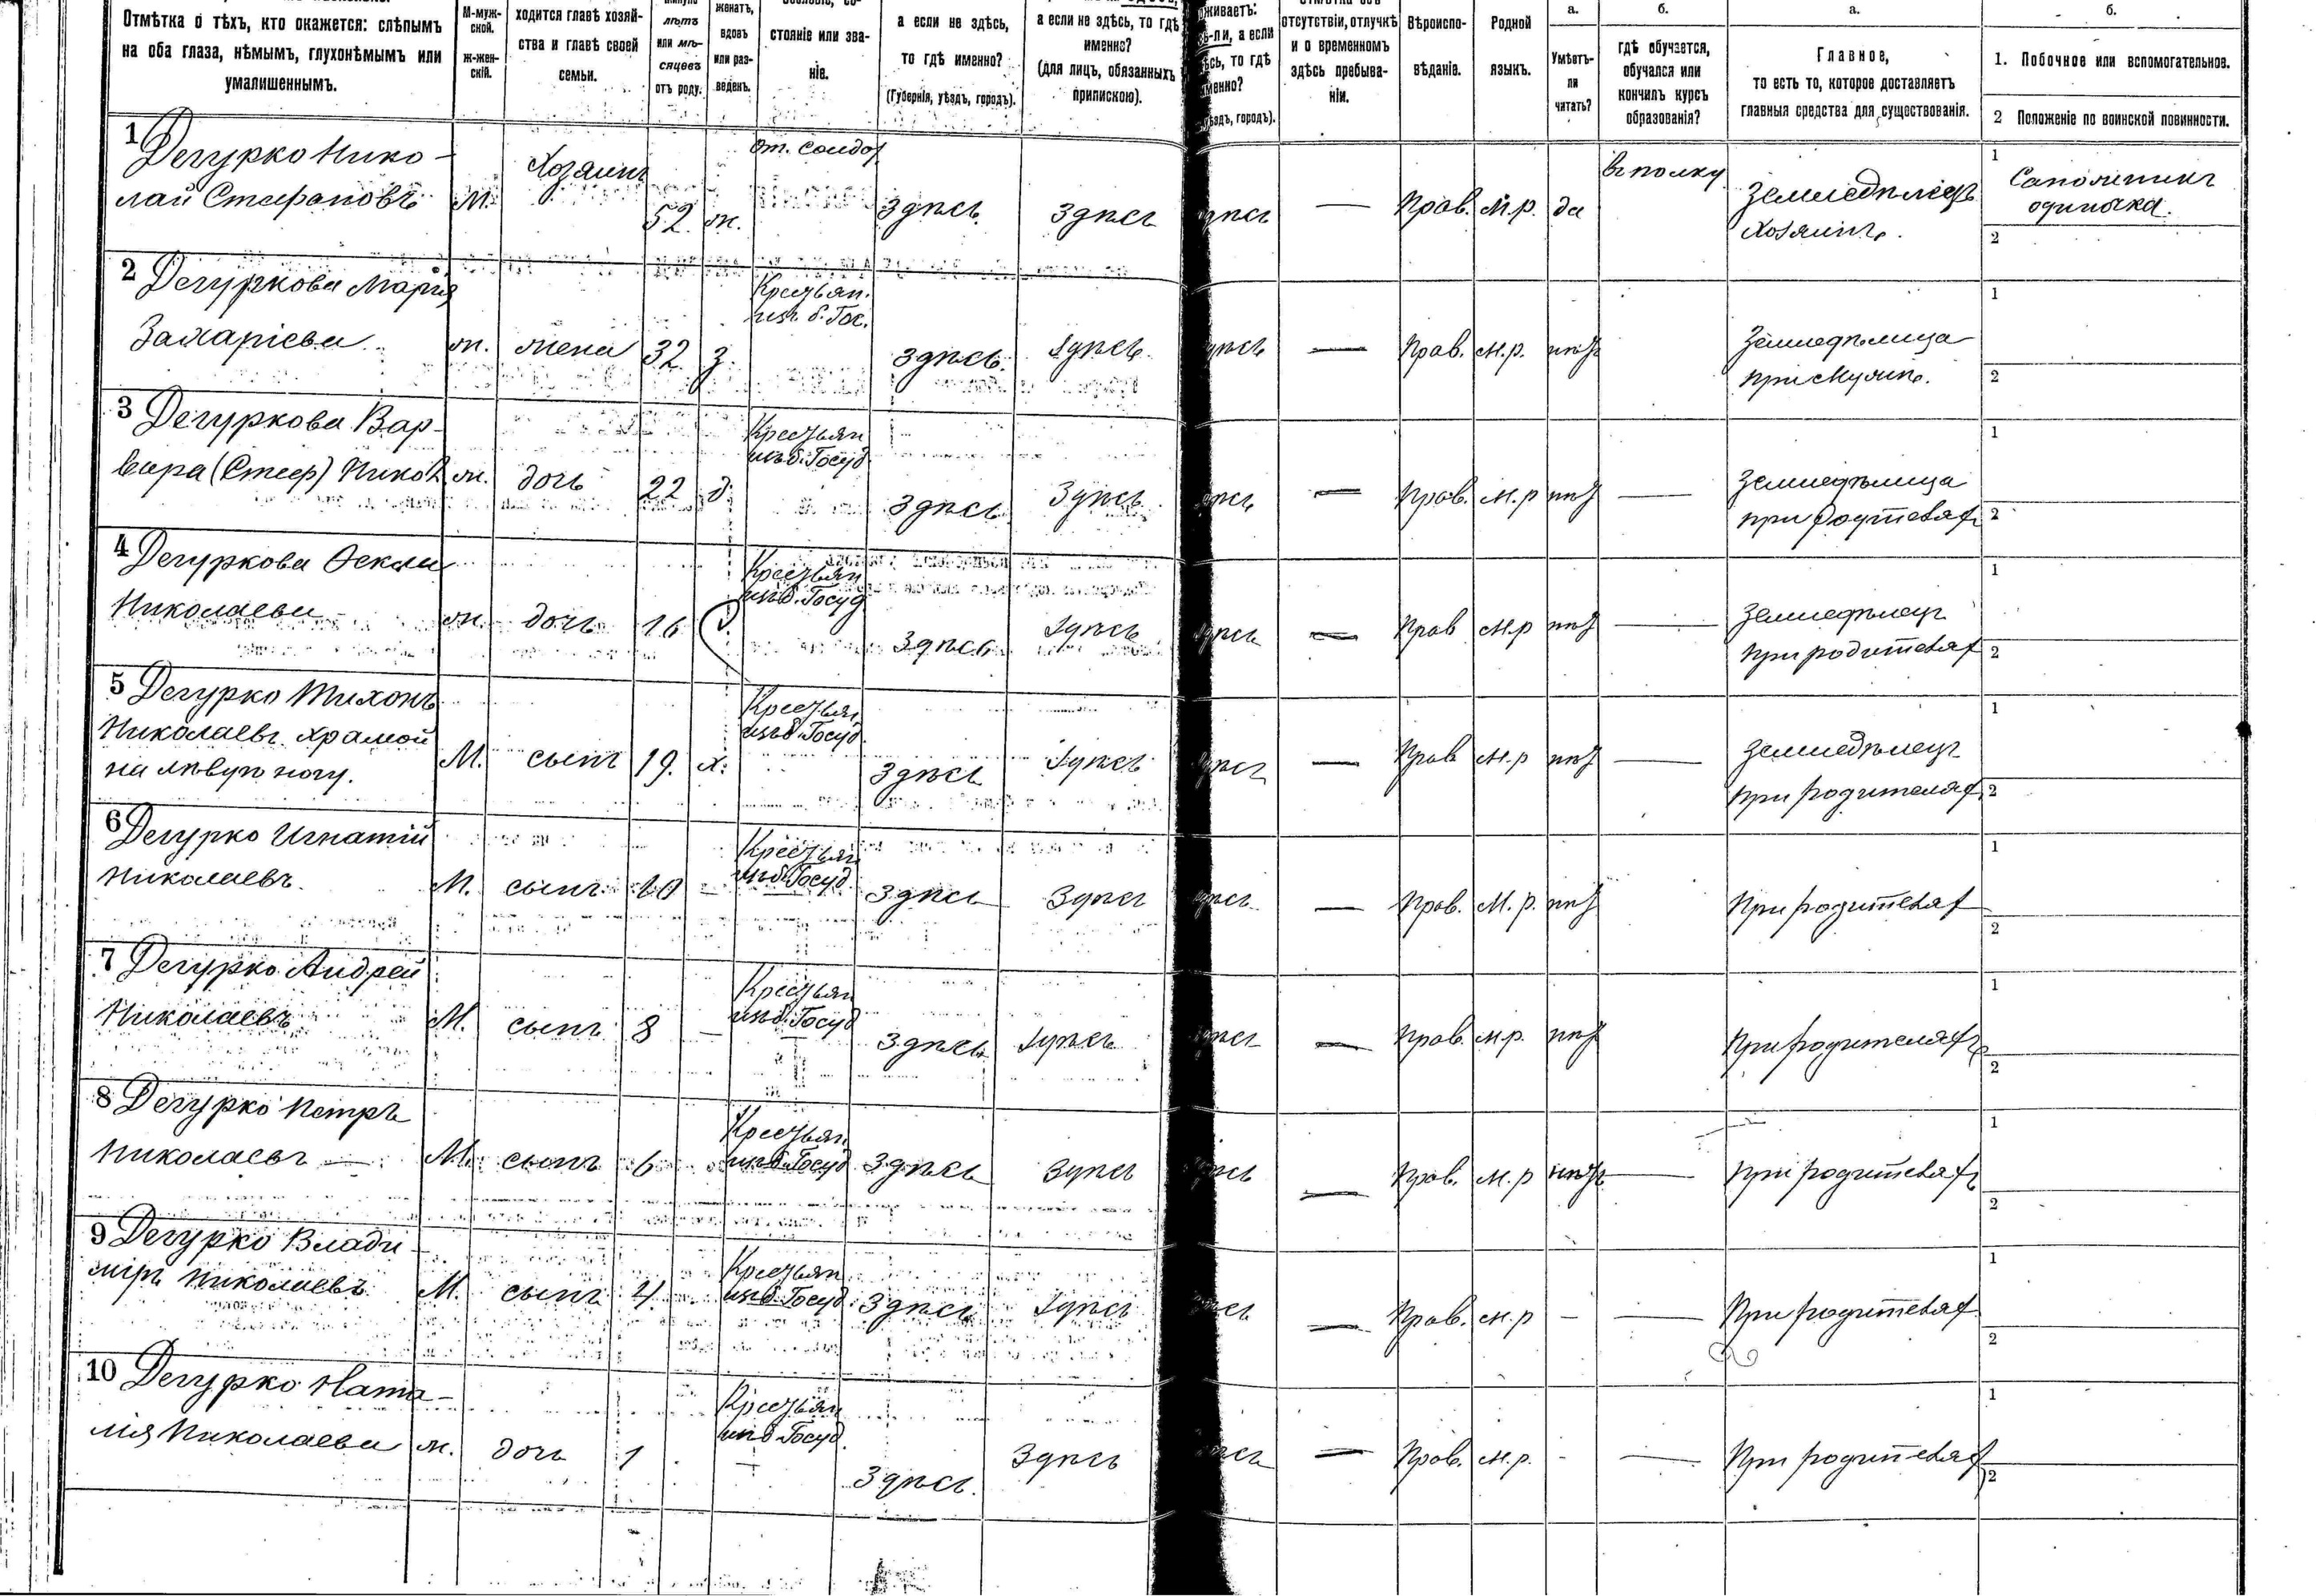 Отмѣтка о тѣхъ, кто окажется: слѣпымъ
на оба глаза, нѣмымъ, глухонѣмымъ или
умалишеннымъ.
М-муж-
ской.
ж-жен-
скій.
ходится главѣ хозяй-
ства и главѣ своей
семьи.
лѣтъ
или мѣ-
сяцевъ
отъ роду.
женатъ,
вдовъ
или раз-
веденъ.
стояніе или зва-
ніе.
а если не здѣсь,
то гдѣ именно?
(Губернія, уѣздъ, городъ).
а если не здѣсь, то гдѣ
именно?
(для лицъ, обязанныхъ
припискою).
живаетъ:
а если
то гдѣ
городъ).
отсутствіи, отлучкѣ
и о временномъ
здѣсь пребыва-
ніи.
Вѣроиспо-
вѣданіе.
Родной
языкъ.
а.
Умѣетъ-
ли
читать?
б.
гдѣ обучается,
обучался или
кончилъ курсъ
образованія?
а.
Главное,
то есть то, которое доставляетъ
главныя средства для существованія.
б.
1. Побочное или вспомогательное.
2 Положеніе по воинской повинности.
1 Дегурко Нико-
лай Стефановъ
М.
Хозяинъ
52
ж.
От. солдат
Здѣсь
Здѣсь
—
Прав.
М.р.
да
въ полку
Земледѣлецъ
Хозяинъ.
1
Сапожникъ
одиночка.
2
2 Дегуркова Марія
Захаріева
ж.
жена
32
з.
Крестьян.
изъ б. Гос.
Здѣсь
Здѣсь
—
Прав.
м.р.
нѣтъ
Земледѣлица
при мужѣ.
1
2
3 Дегуркова Вар-
вара (Стеф) Никол
ж.
дочь
22
д.
Крестьян
изъ б. Госуд
Здѣсь
Здѣсь
—
Прав.
м.р
нѣт
—
Земледѣлица
при родителях
1
2
4 Дегуркова Фекла
Николаева
ж.
дочь
16
Крестьян
изъ б. Госуд
Здѣсь
Здѣсь
—
Прав
м.р
нѣт
—
Земледѣлец
при родителях
1
2
5 Дегурко Тихонъ
Николаевъ. хромой
на лѣвую ногу.
М.
сынъ
19.
х.
Крестьян
изъ б. Госуд
Здѣсь
Здѣсь
—
Прав
м.р
нѣт
—
Земледѣлецъ
При родителях
1
2
6 Дегурко Игнатій
Николаевъ
М.
сынъ
10
—
Крестьян
изъ б. Госуд
Здѣсь
Здѣсь
—
Прав.
М.р.
нѣт
При родителях
1
2
7 Дегурко Андрей
Николаевъ
М.
сынъ
8
—
Крестьян
изъ б. Госуд
Здѣсь
Здѣсь
—
Прав.
м.р.
нѣт
При родителях
1
2
8 Дегурко Петръ
Николаевъ —
М.
сынъ
6
Крестьян
изъ б. Госуд
Здѣсь
Здѣсь
—
Прав.
м.р
нѣтъ
—
При родителях
1
2
9 Дегурко Влади
міръ Николаевъ
М.
сынъ
4.
Крестьян
изъ б. Госуд
Здѣсь
Здѣсь
—
Прав.
м.р
-
—
При родителях
1
2
10 Дегурко Ната-
лія Николаева
ж.
дочь
1
Крестьян
изъ б Госуд.
Здѣсь.
Здѣсь
—
Прав.
м.р.
-
—
При родителях
1
2